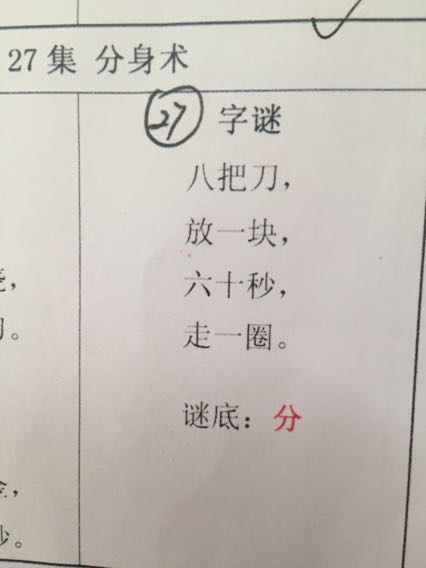 27集 分身术
27 字谜
八把刀，
放一块，
六十秒，
走一圈。
谜底：分
，
。
，
。